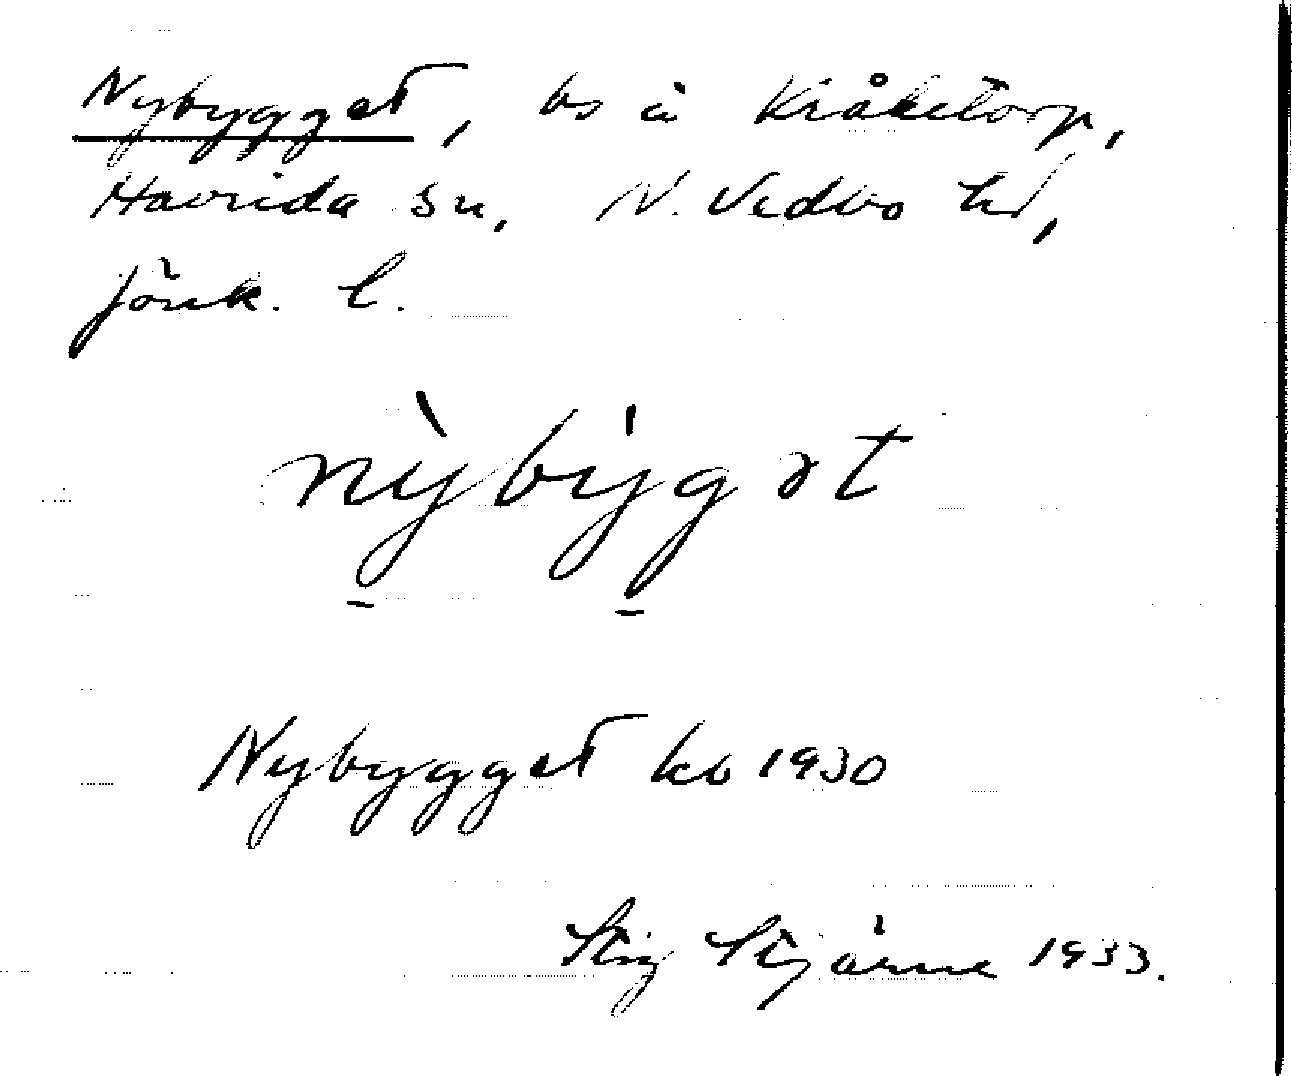 Nybygget, bs å Kråketorp,
Haurida sn, N. Vedbo hd,
Jönk. l.
nỳ̠bý̠gət
Nybygget kb 1930
Stig Stjärne 1933.